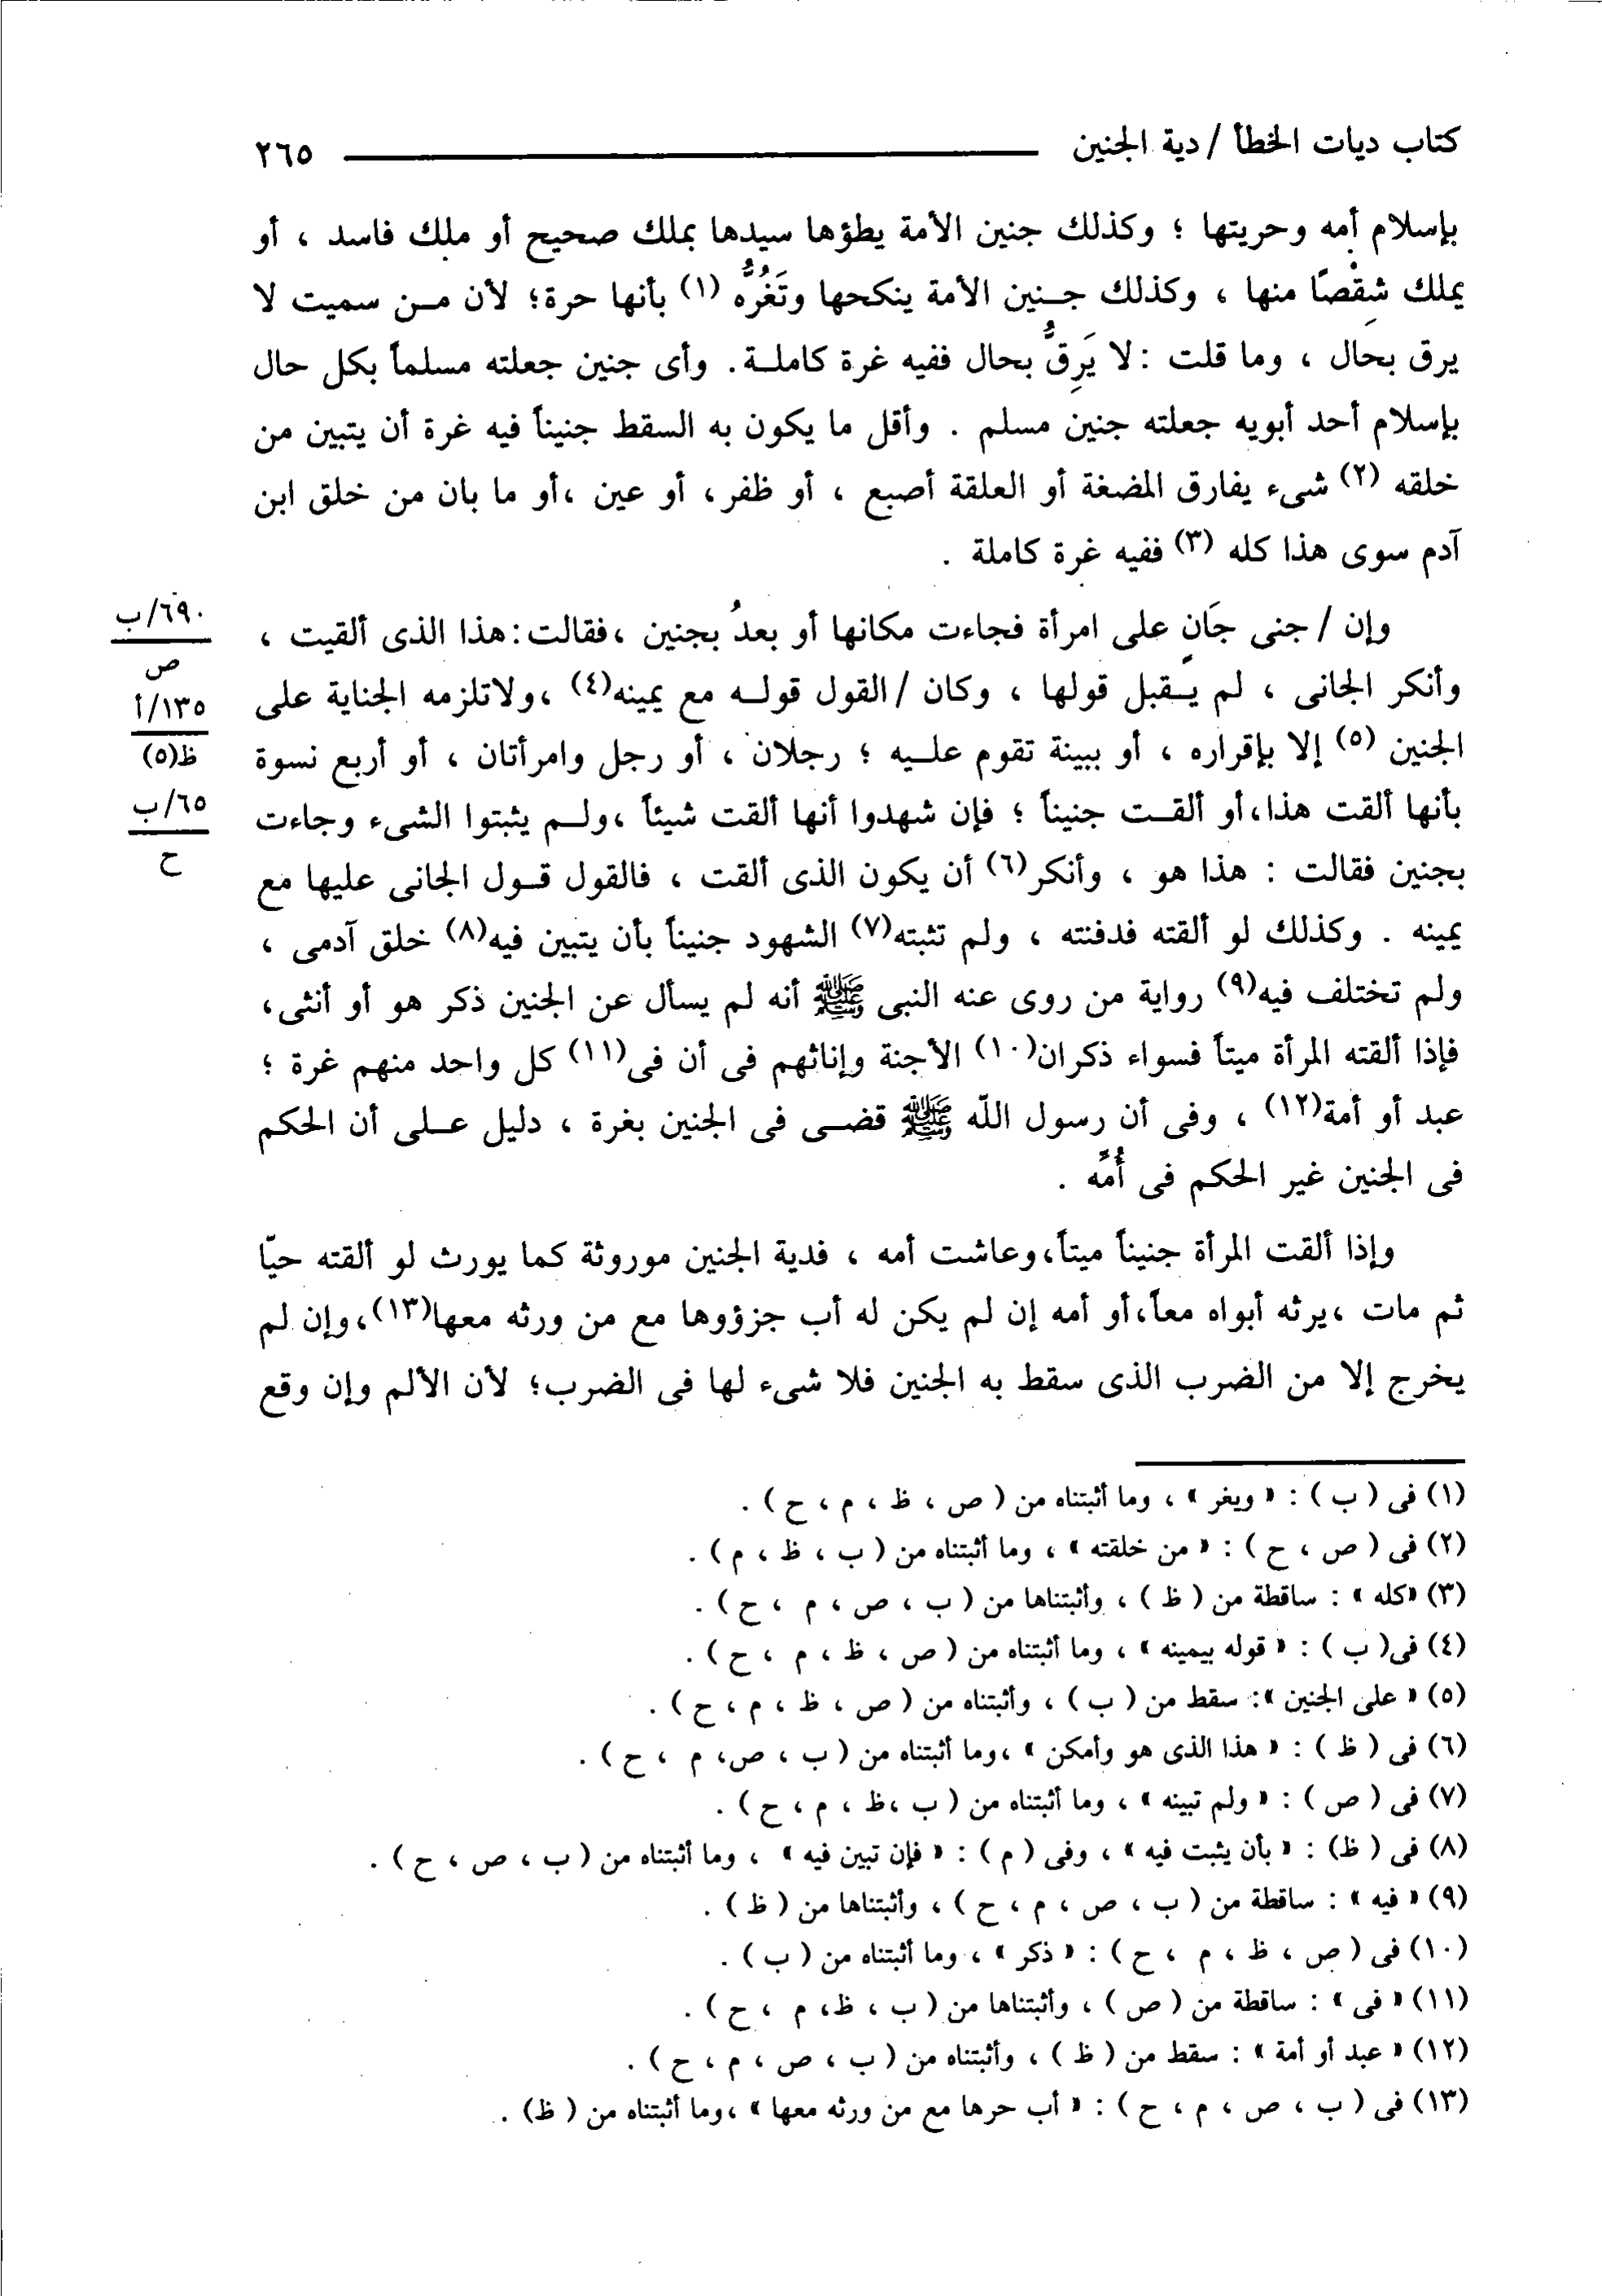 كتاب ديات الخطأ / دية الجنين ٢٦٥
بإسلام أمه وحريتها ؛ وكذلك جنين الأمة يطؤها سيدها بملك صحيح أو ملك فاسد ، أو
يملك شِقْصًا منها ، وكذلك جـنين الأمة ينكحها وتَغُرُّه (١) بأنها حرة؛ لأن مـن سميت لا
يرق بحال ، وما قلت : لا يَرِقُّ بحال ففيه غرة كاملـة. وأى جنين جعلته مسلماً بكل حال
بإسلام أحد أبويه جعلته جنين مسلم . وأقل ما يكون به السقط جنيناً فيه غرة أن يتبين من
خلقه (٢) شىء يفارق المضغة أو العلقة أصبع ، أو ظفر، أو عين ،أو ما بان من خلق ابن
آدم سوى هذا كله (٣) ففيه غرة كاملة .
وإن / جنى جَانٍ على امرأة فجاءت مكانها أو بعدُ بجنين ،فقالت: هذا الذى ألقيت ،
وأنكر الجانى ، لم يـقبل قولها ، وكان / القول قولـه مع يمينه(٤) ،ولاتلزمه الجناية على
الجنين (٥) إلا بإقراره ، أو ببينة تقوم علـيه ؛ رجلان ، أو رجل وامرأتان ، أو أربع نسوة
بأنها ألقت هذا،أو ألقـت جنيناً ؛ فإن شهدوا أنها ألقت شيئاً ،ولـم يثبتوا الشىء وجاءت
بجنين فقالت : هذا هو ، وأنكر(٦) أن يكون الذى ألقت ، فالقول قـول الجانى عليها مع
يمينه . وكذلك لو ألقته فدفنته ، ولم تثبته(٧) الشهود جنيناً بأن يتبين فيه(٨) خلق آدمى ،
ولم تختلف فيه(٩) رواية من روى عنه النبى ﷺ أنه لم يسأل عن الجنين ذكر هو أو أنثى،
فإذا ألقته المرأة ميتاً فسواء ذكران(١٠) الأجنة وإناثهم فى أن فى(١١) كل واحد منهم غرة ؛
عبد أو أمة(١٢) ، وفى أن رسول اللّه ﷺ قضـى فى الجنين بغرة ، دليل علـى أن الحكم
فى الجنين غير الحكم فى أُمِّه .
وإذا ألقت المرأة جنيناً ميتاً،وعاشت أمه ، فدية الجنين موروثة كما يورث لو ألقته حيّا
ثم مات ،يرثه أبواه معاً،أو أمه إن لم يكن له أب جزؤوها مع من ورثه معها(١٣)،وإن لم
يخرج إلا من الضرب الذى سقط به الجنين فلا شىء لها فى الضرب؛ لأن الألم وإن وقع
٦٩٠/ب
ص
١٣٥/أ
ظ(٥)
٦٥/ب
ح
(١) فى ( ب ) : « ويغر » ، وما أثبتناه من ( ص ، ظ ، م ، ح ) .
(٢) فى ( ص ، ح ) : « من خلقته » ، وما أثبتناه من ( ب ، ظ ، م ) .
(٣) «كله » : ساقطة من ( ظ ) ، وأثبتناها من ( ب ، ص ، م ، ح ) .
(٤) فى( ب ) : « قوله بيمينه » ، وما أثبتناه من ( ص ، ظ ، م ، ح ) .
(٥) « على الجنين »: سقط من ( ب ) ، وأثبتناه من ( ص ، ظ ، م ، ح ) .
(٦) فى ( ظ ) : « هذا الذى هو وأمكن » ،وما أثبتناه من ( ب ، ص، م ، ح ) .
(٧) فى ( ص ) : « ولم تبينه » ، وما أثبتناه من ( ب ،ظ ، م ، ح ) .
(٨) فى ( ظ) : « بأن يثبت فيه » ، وفى ( م ) : « فإن تبين فيه » ، وما أثبتناه من ( ب ، ص ، ح ) .
(٩) « فيه » : ساقطة من ( ب ، ص ، م ، ح ) ، وأثبتناها من ( ظ ) .
(١٠) فى ( ص ، ظ ، م ، ح ) : « ذكر » ، وما أثبتناه من ( ب ) .
(١١) « فى » : ساقطة من ( ص ) ، وأثبتناها من ( ب ، ظ، م ، ح ) .
(١٢) « عبد أو أمة » : سقط من ( ظ ) ، وأثبتناه من ( ب ، ص ، م ، ح ) .
(١٣) فى ( ب ، ص ، م ، ح ) : « أب حرها مع من ورثه معها » ،وما أثبتناه من ( ظ) .